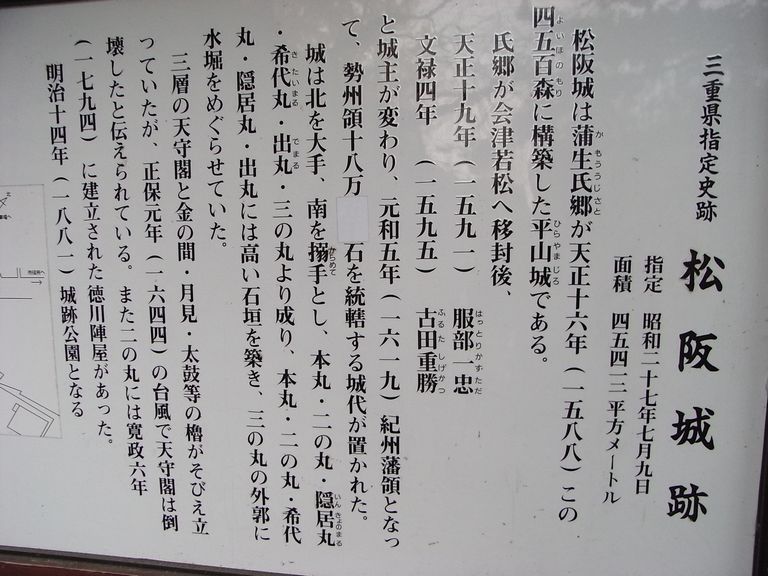 三重県指定史跡
松阪城跡
指定 昭和二十七年七月九日
面積 四五四一三平方メートル
松阪城は蒲生氏郷が天正十六年(一五八八)この
四五百森に構築した平山城である。
氏郷が会津若松へ移封後、
天正十九年(一五九一) 服部一忠
文禄四年 (一五九五) 古田重勝
と城主が変わり、元和五年(一六一九)紀州藩領となっ
て、勢州領十八万 石を統轄する城代が置かれた。
城は北を大手 南を搦手とし、本丸・二の丸・隠居丸
・希代丸・出丸・三の丸より成り、本丸・二の丸・希代
丸・隠居丸・出丸には高い石垣を築き、三の丸の外郭に
水堀をめぐらせていた。
三層の天守閣と金の間・月見・太鼓等の櫓がそびえ立
っていたが、正保元年(一六四四)の台風で天守閣は倒
壊したと伝えられている。また二の丸には寛政六年
(一七九四)に建立された徳川陣屋があった。
明治十四年(一八八一)城跡公園となる